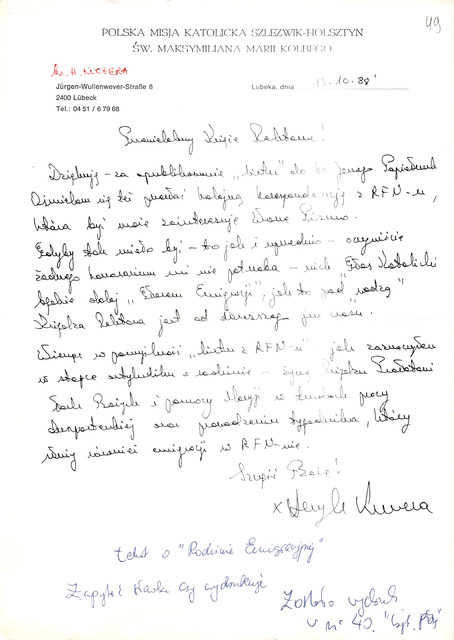 49
POLSKA MISJA KATOLICKA SZLEZWIK-HOLSZTYN
ŚW. MAKSYMILIANA MARII KOLBEGO
ks. H. KUCZERA
Jürgen-Wullenwever-Straße 8
2400 Lübeck
Tel.: 04 51 / 6 79 68
Lubeka, dnia 13.10.88
Księże Redaktorze!
Dziękuję - za opublikowanie "listu" do
Ośmielam się też posłać kolejną korespondencję z RFN-u,
która być może zainteresuje Wasze Pismo.
Gdyby tak miało być - to jak i uprzednio - oczywiście
żadnego honorarium mi nie potrzeba - niech "Głos Katolicki"
będzie dalej "Głosem Emigracji", jak to pod "wodzą"
Księdza Redaktora jest od dłuższego już czasu.
Wierząc w pomyślność "listu z RFN-u" jak zaznaczyłem
w stopce artykuliku o rodzinie - życzę Księdzu
Bożych i pomocy Maryi w trudach pracy
duszpasterskiej oraz prowadzeniu tygodnika, który
służy również emigracji w RFN-nie.
Szczęść Boże!
x Henryk Kuczera
tekst o "Rodzinie Emigracyjnej"
Zapytać czy wydrukuje
Został wydruk
w nr 40.